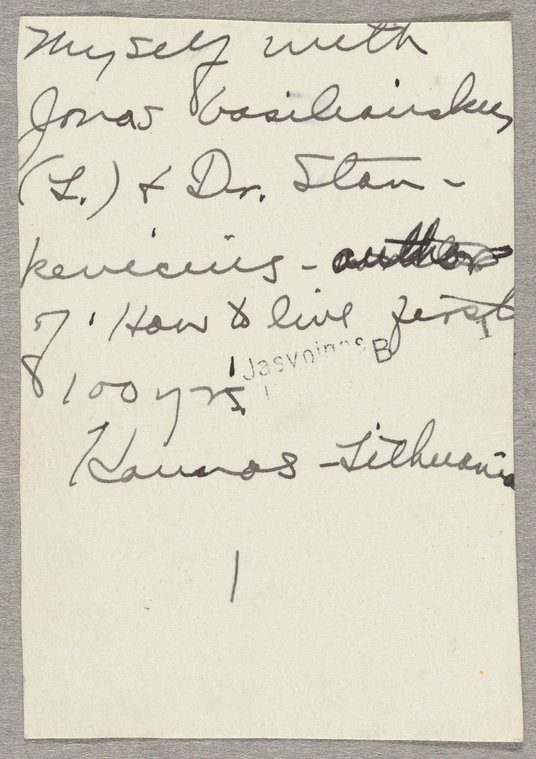 Myself with
Jonas Vasiliauskas
(L.) & Dr. Stan-
kevicius - author
of 'How to live first
100 yrs'
Kaunas - Lithuania
B